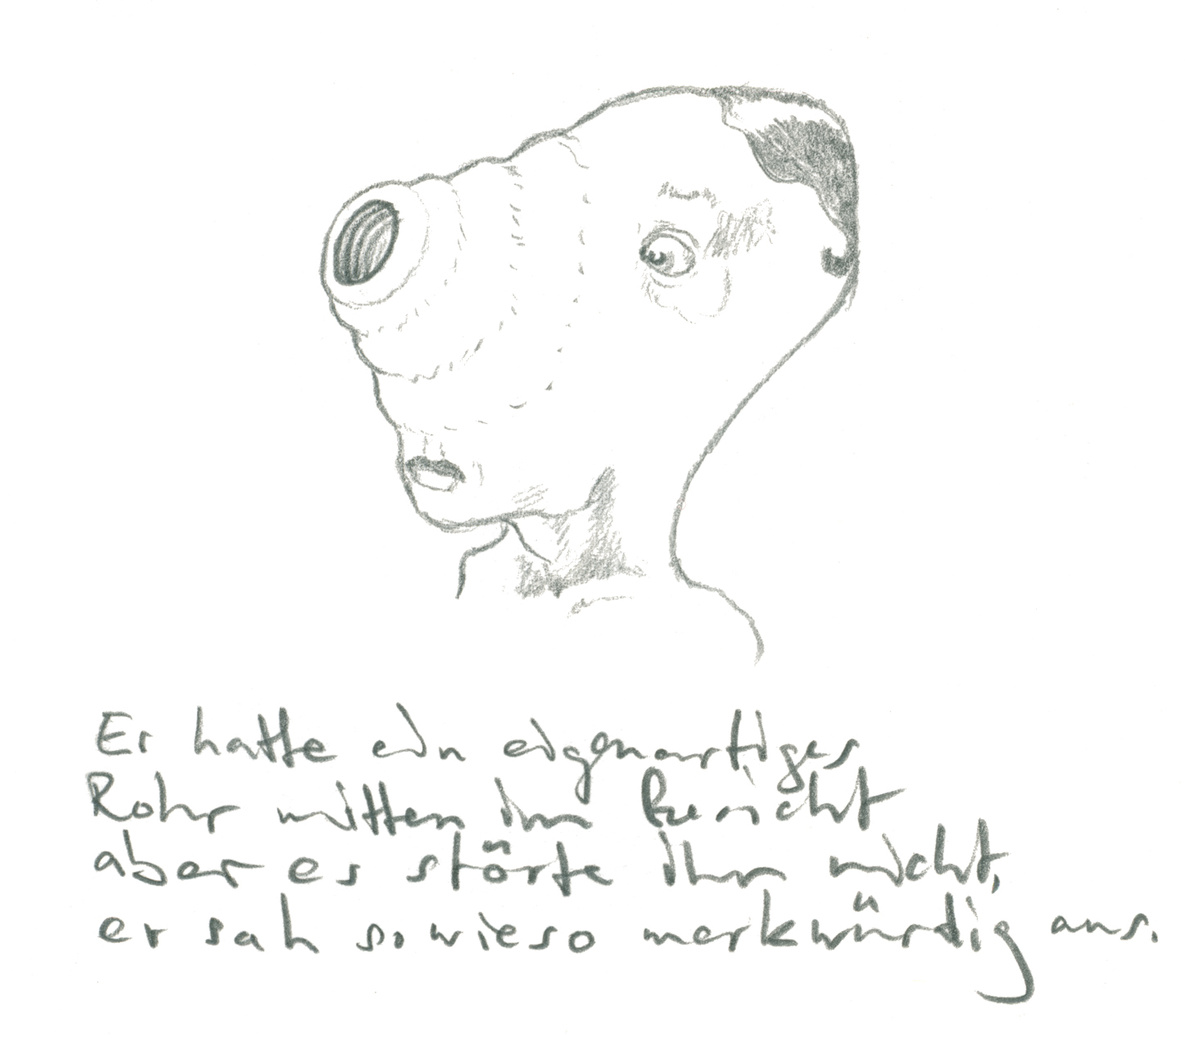 Er hatte ein eigenartiges
Rohr mitten im Gesicht
aber es störte ihn nicht,
er sah sowieso merkwürdig aus.